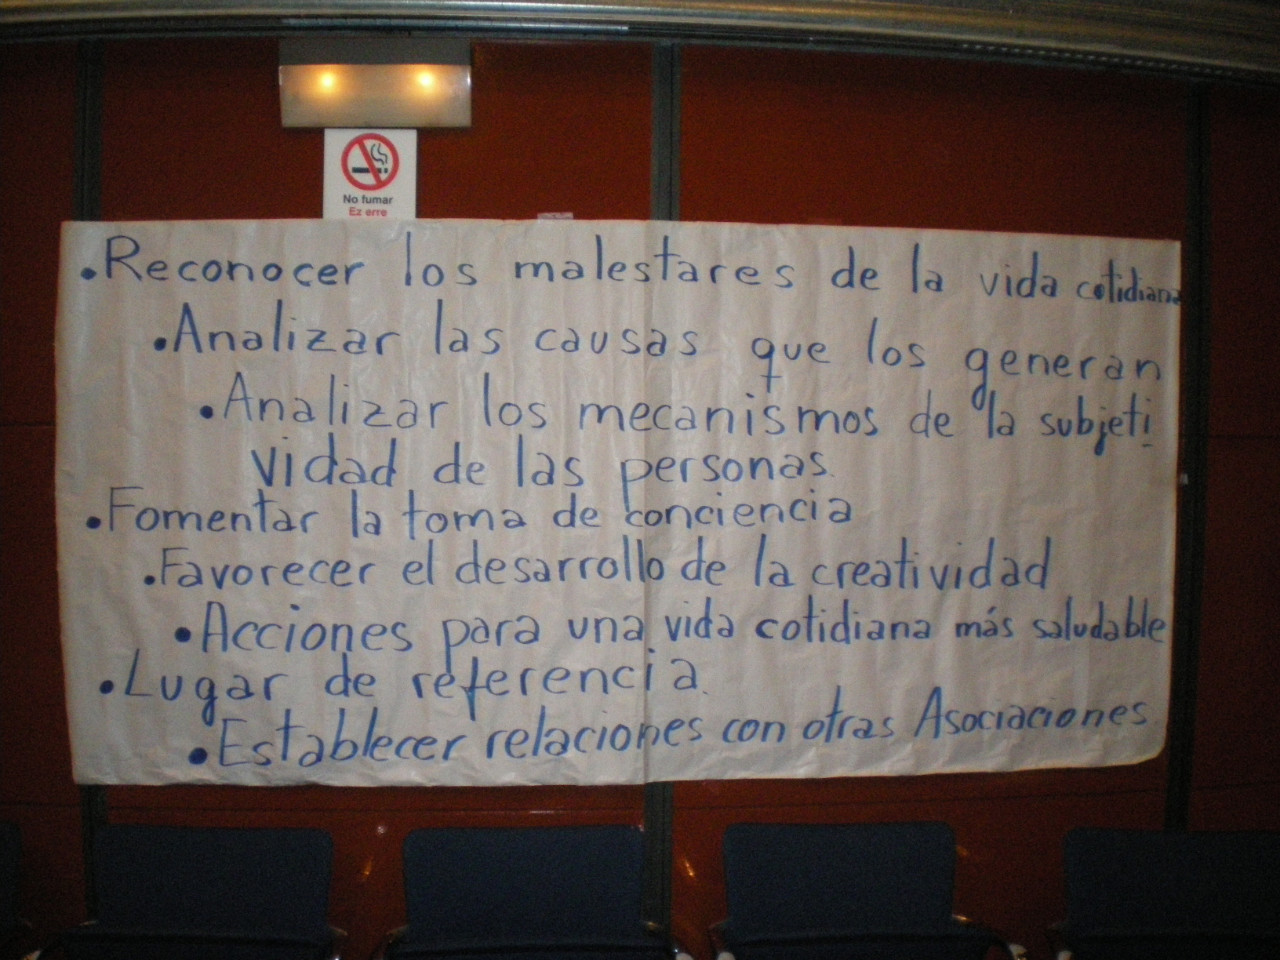 No fumar
Ez erre
•Reconocer los malestares de la vida cotidiana
•Analizar las causas que los generan
•Analizar los mecanismos de la subjeti
vidad de las personas.
•Fomentar la toma de conciencia
•Favorecer el desarrollo de la creatividad
•Acciones para una vida cotidiana más saludable
•Lugar de referencia.
•Establecer relaciones con otras Asociaciones